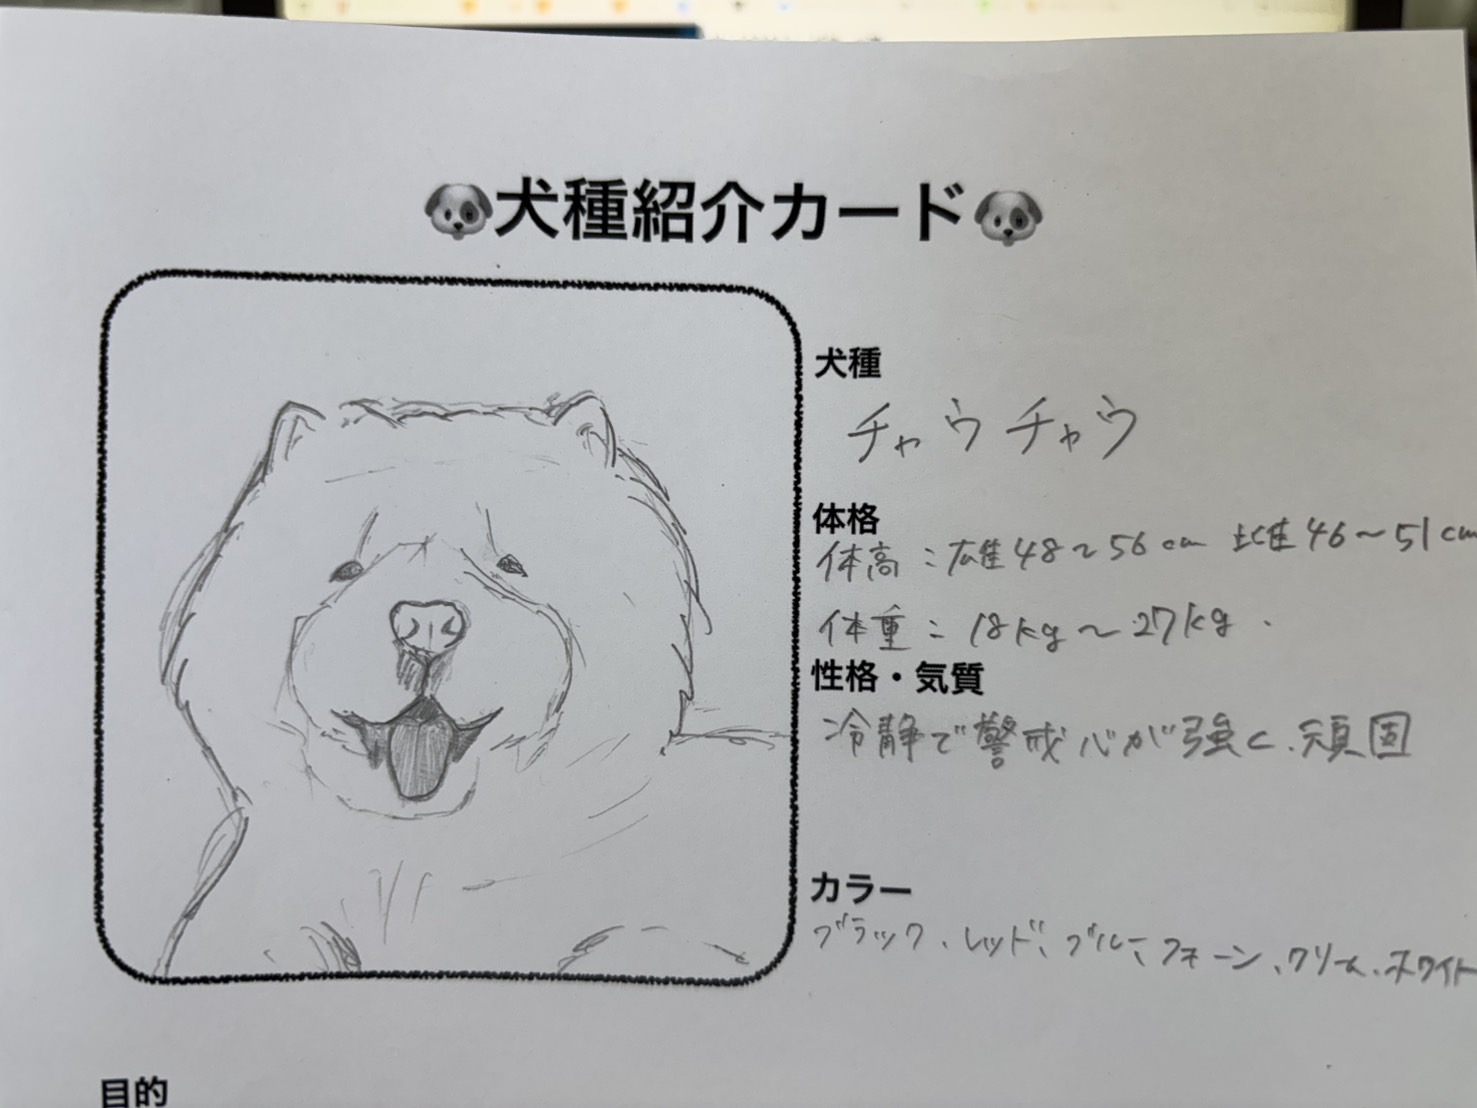 🐶犬種紹介カード🐶
犬種
チャウチャウ
体格
体高：雄48~56cm 雌46~51cm
体重：18kg~27kg.
性格・気質
冷静で警戒心が強く、頑固
カラー
ブラック、レッド、ブルー、フォーン、クリーム、ホワイト
目的